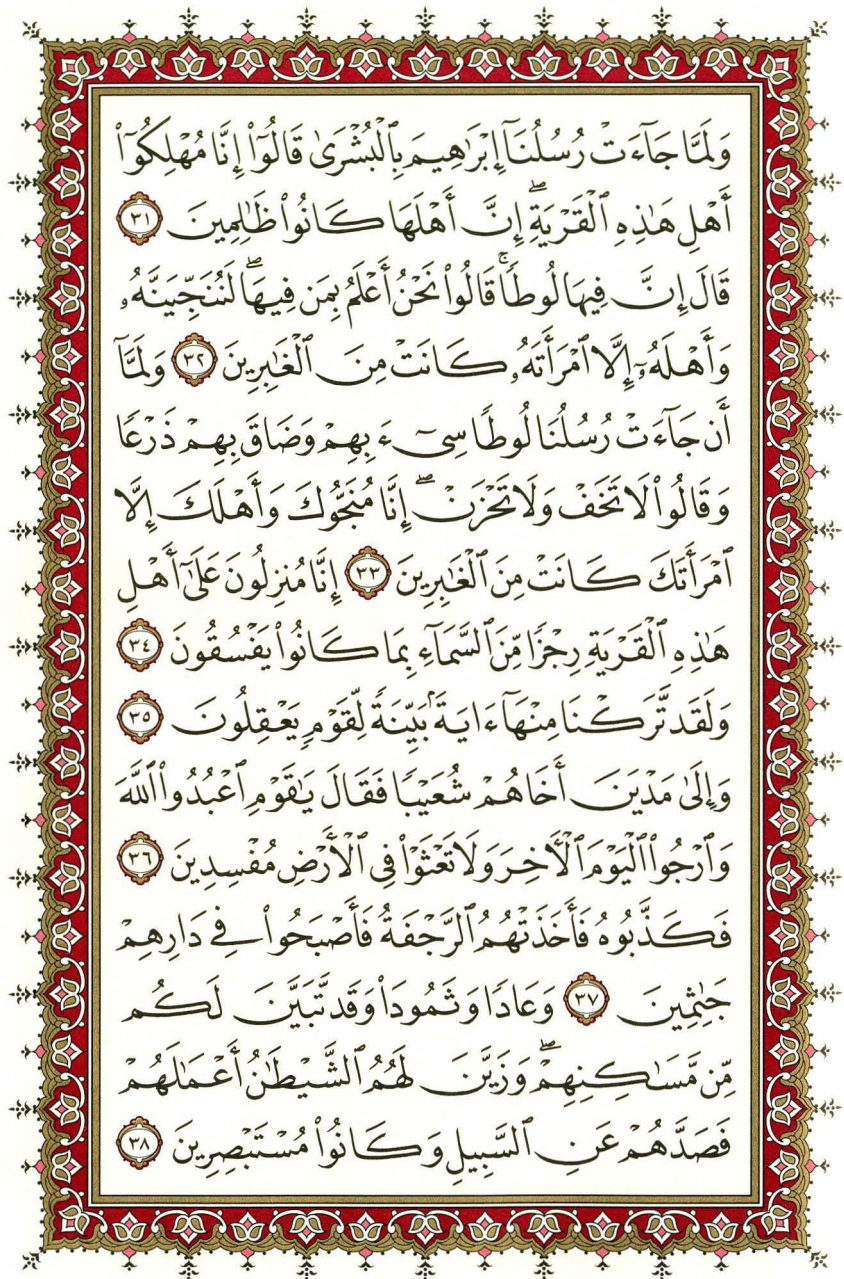 وَلَمَّا جَآءَتْ رُسُلُنَآ إِبْرَٰهِيمَ بِٱلْبُشْرَىٰ قَالُوٓا۟ إِنَّا مُهْلِكُوٓا۟
أَهْلِ هَٰذِهِ ٱلْقَرْيَةِ ۖ إِنَّ أَهْلَهَا كَانُوا۟ ظَٰلِمِينَ ٣١
قَالَ إِنَّ فِيهَا لُوطًا ۚ قَالُوا۟ نَحْنُ أَعْلَمُ بِمَن فِيهَا ۖ لَنُنَجِّيَنَّهُۥ
وَأَهْلَهُۥٓ إِلَّا ٱمْرَأَتَهُۥ كَانَتْ مِنَ ٱلْغَٰبِرِينَ ٣٢ وَلَمَّآ
أَن جَآءَتْ رُسُلُنَا لُوطًا سِىٓءَ بِهِمْ وَضَاقَ بِهِمْ ذَرْعًا
وَقَالُوا۟ لَا تَخَفْ وَلَا تَحْزَنْ ۖ إِنَّا مُنَجُّوكَ وَأَهْلَكَ إِلَّا
ٱمْرَأَتَكَ كَانَتْ مِنَ ٱلْغَٰبِرِينَ ٣٣ إِنَّا مُنزِلُونَ عَلَىٰٓ أَهْلِ
هَٰذِهِ ٱلْقَرْيَةِ رِجْزًا مِّنَ ٱلسَّمَآءِ بِمَا كَانُوا۟ يَفْسُقُونَ ٣٤
وَلَقَد تَّرَكْنَا مِنْهَآ ءَايَةًۢ بَيِّنَةً لِّقَوْمٍ يَعْقِلُونَ ٣٥
وَإِلَىٰ مَدْيَنَ أَخَاهُمْ شُعَيْبًا فَقَالَ يَٰقَوْمِ ٱعْبُدُوا۟ ٱللَّهَ
وَٱرْجُوا۟ ٱلْيَوْمَ ٱلْـَٔاخِرَ وَلَا تَعْثَوْا۟ فِى ٱلْأَرْضِ مُفْسِدِينَ ٣٦
فَكَذَّبُوهُ فَأَخَذَتْهُمُ ٱلرَّجْفَةُ فَأَصْبَحُوا۟ فِى دَارِهِمْ
جَٰثِمِينَ ٣٧ وَعَادًا وَثَمُودَا۟ وَقَد تَّبَيَّنَ لَكُم
مِّن مَّسَٰكِنِهِمْ ۖ وَزَيَّنَ لَهُمُ ٱلشَّيْطَٰنُ أَعْمَٰلَهُمْ
فَصَدَّهُمْ عَنِ ٱلسَّبِيلِ وَكَانُوا۟ مُسْتَبْصِرِينَ ٣٨